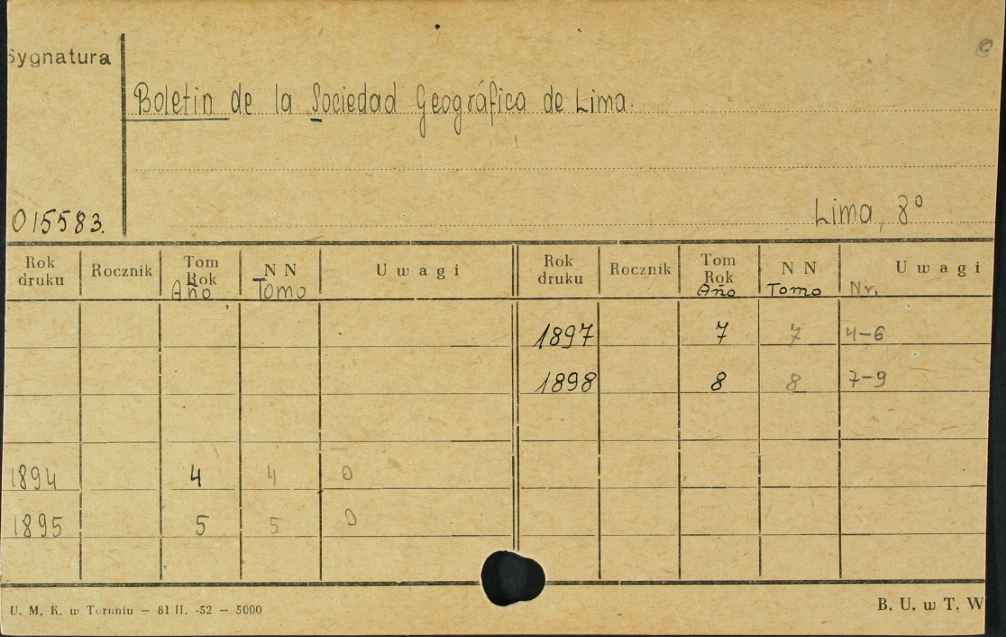 Sygnatura
Boletin de la Sociedad Geográfica de Lima.
Lima, 8º
015583.
Rok druku Rocznik Tom Rok Año N N Tomo U w a g i Rok druku Rocznik Tom Rok Año N N Tomo U w a g i Nr.
1897 7 7 4-6
1898 8 8 7-9
1894 4 4 0
1895 5 5 0
U. M. K. w Toruniu — 81 II. -52 — 5000
B. U. w T. W